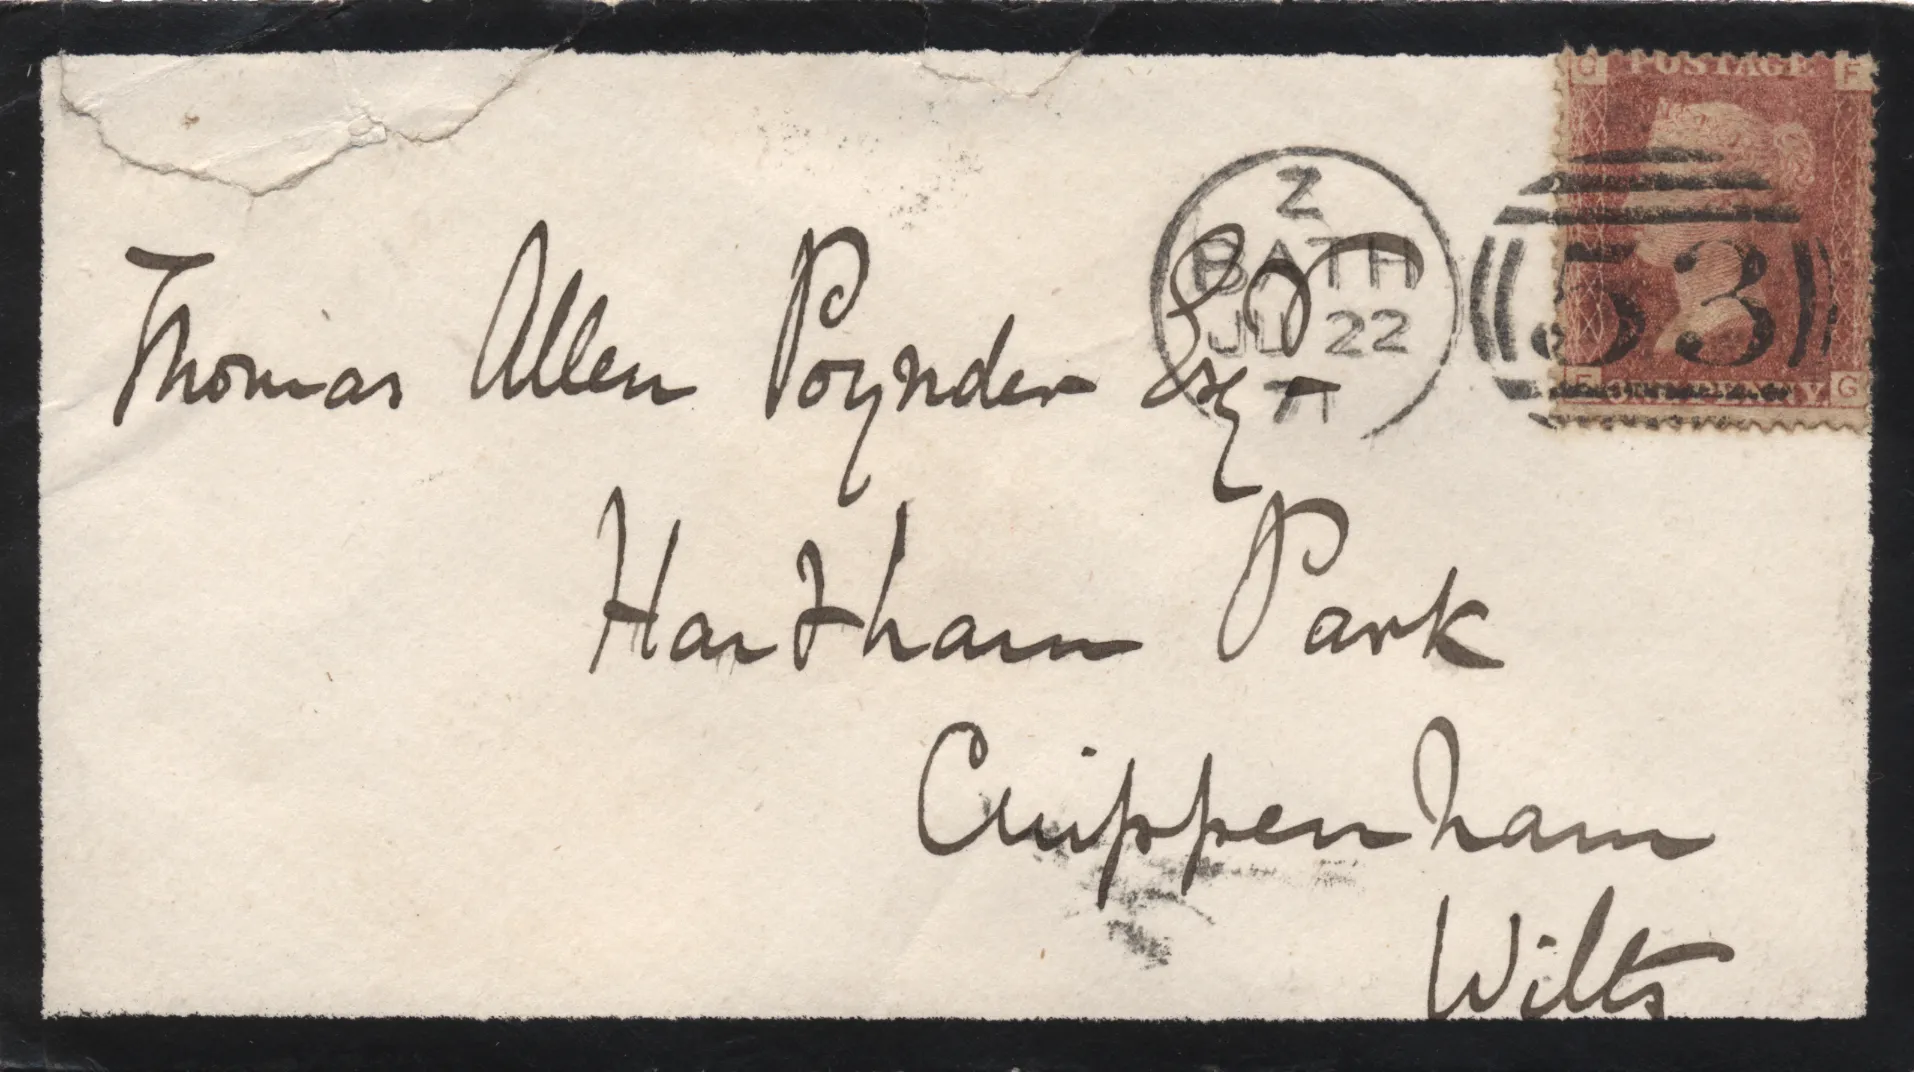 Thomas Allen Poynder Esqr
Hartham Park
Chippenham
Wilts
Z
BATH
JU 22
71
53
G POSTAGE F
F ONE PENNY G